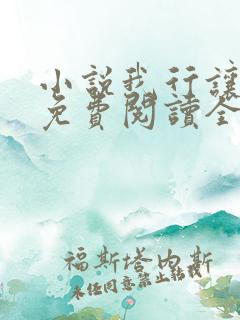 小說我行讓
免費閱讀全
福斯塔內斯
未經同意禁止轉載